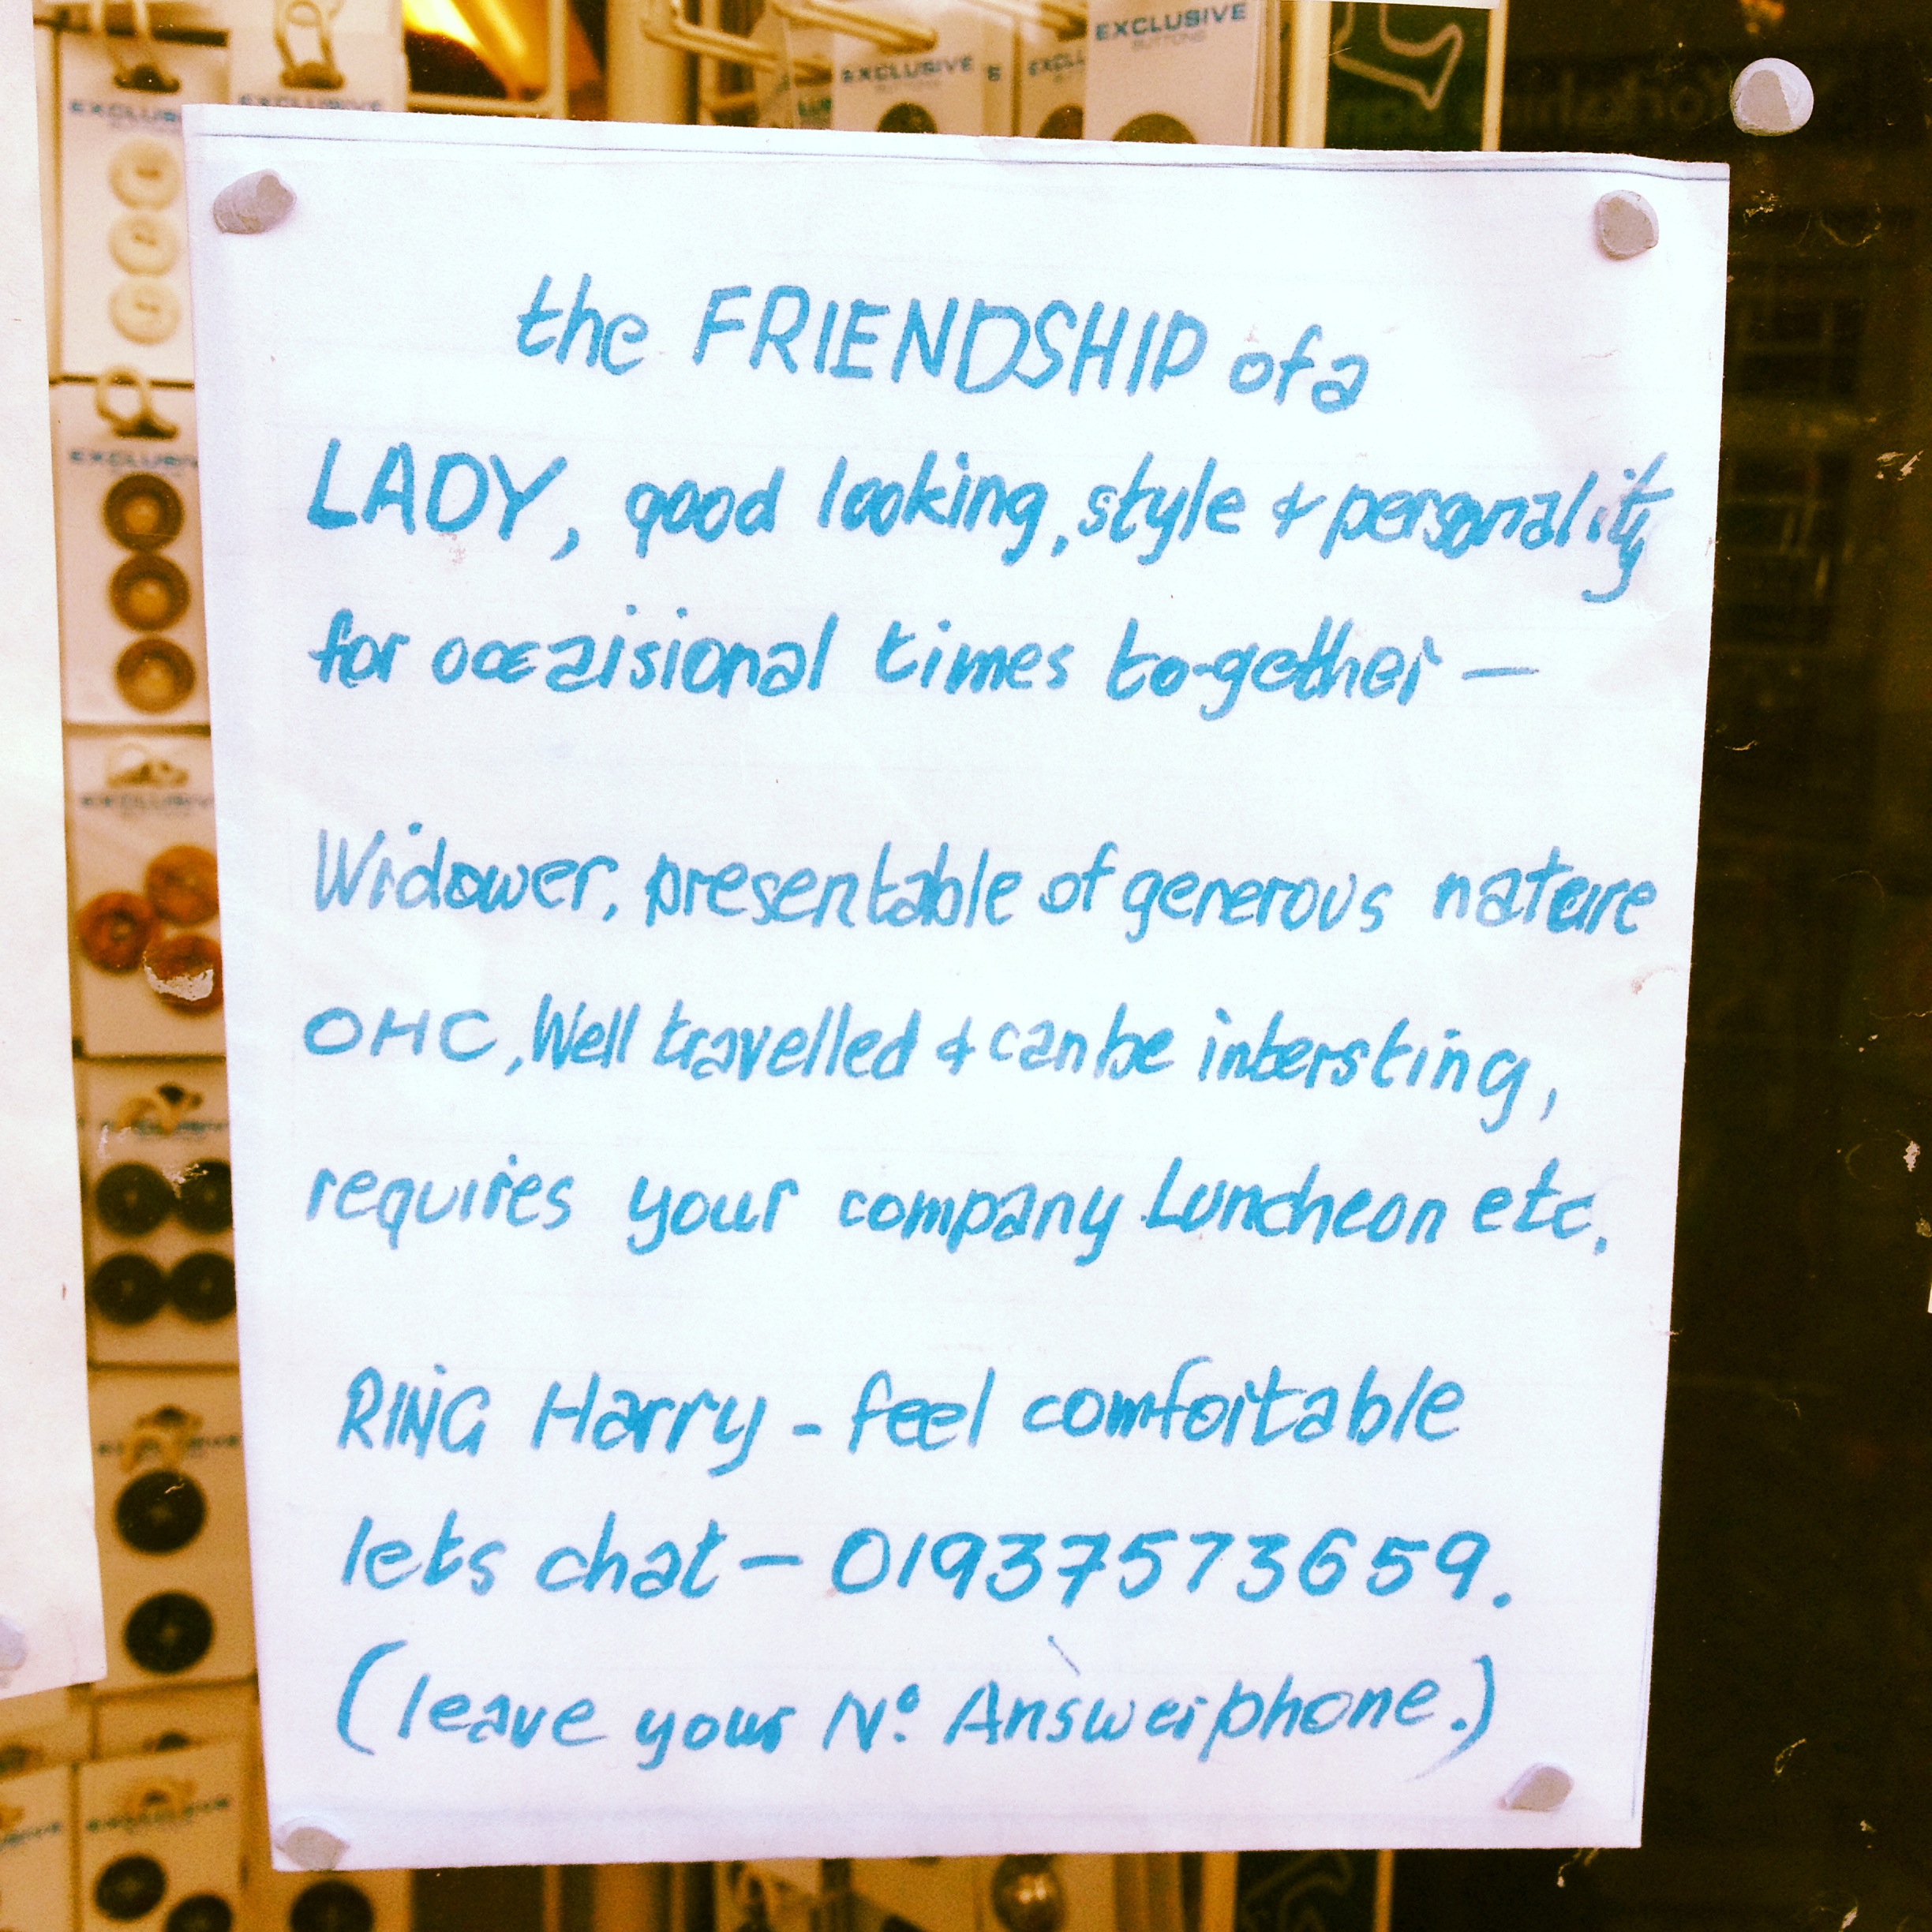 EXCLUSIVE
BUTTONS
EXCLUSIVE
BUTTONS
EXCLUSIVE
the FRIENDSHIP of a
LADY, good looking, style & personality
for occaisional times to-gether —
Widower, presentable of generous nature
OHC, Well travelled & can be intersting,
requires your company Luncheon etc.
RING Harry - feel comfortable
lets chat — 01937573659.
(leave your Nº. Answerphone.)